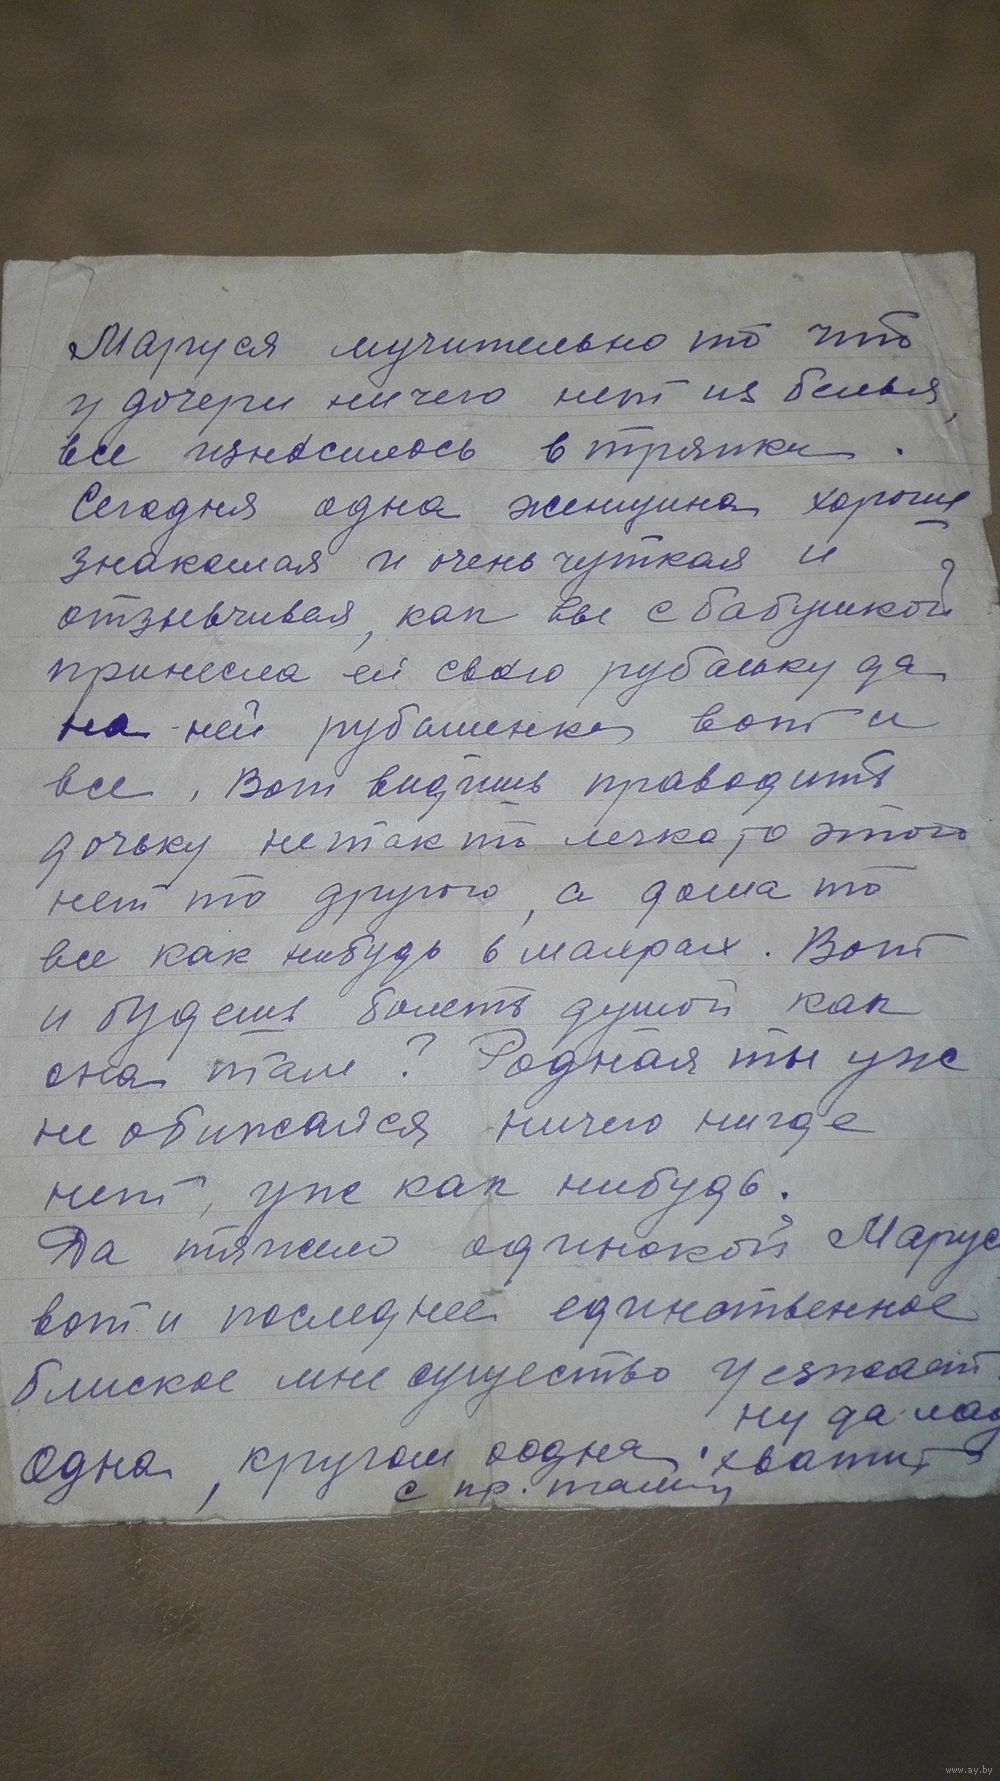 Маруся мучительно то что
у дочери ничего нет из белья,
все износилось в тряпки.
Сегодня одна женщина хорошие
знакомая и очень чуткая и
отзывчивая, как Вы с бабушкой
принесла ей свою рубашку да
на ней рубашенка вот и
все. Вот видишь праводить
дочьку не так то легка, то этого
нет то другого, а дома то
все как нибудь в
Вот
и будешь болеть душой как
она там? Родная ты уж
не обижайся ничего нигде
нет, уж как нибудь.
Да тяжело одинокой Маруся
вот и последнее единственное
блиское мне существо уезжает.
одна, кругом одна. ну да
хватит
с пр.
www.ay.by